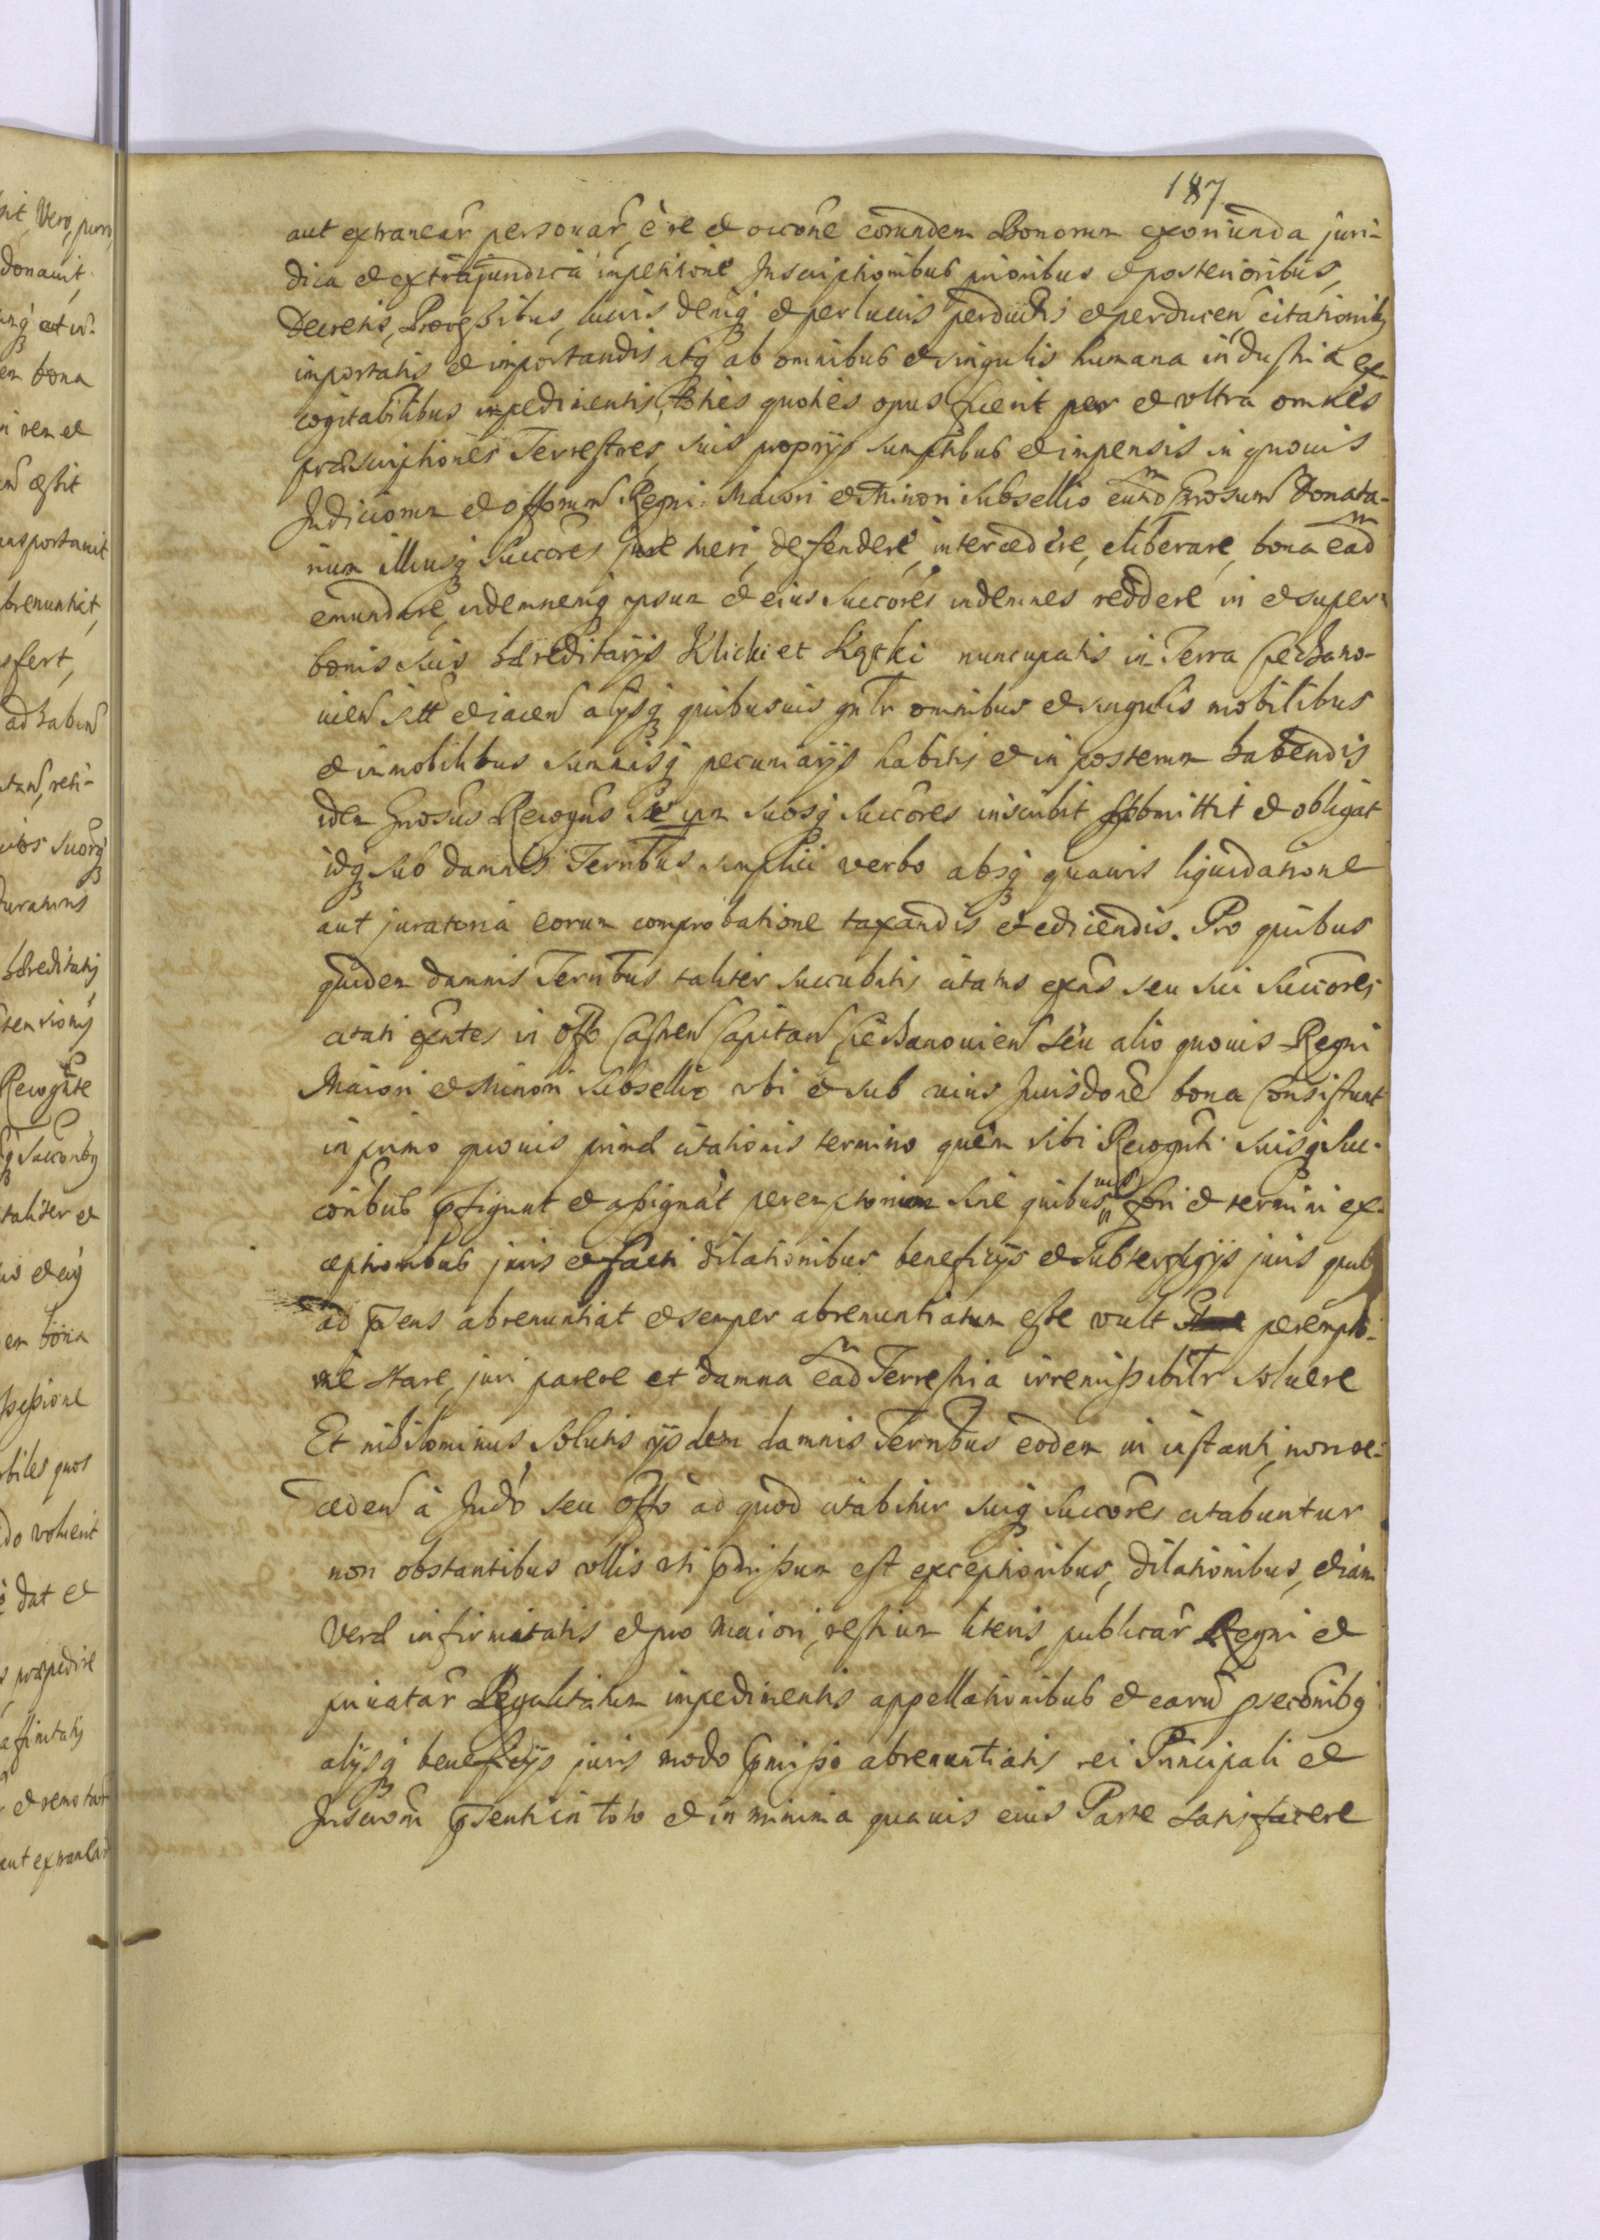 187
aut extranear personar, ē re et occōne eorundem Bonorum exoriunda juri-
dica et extrajuridica impetitione Inscriptionibus prioribus et posterioribus,
Decretis, Processibus, lucris deniq et per lucris perductis et perducen citationibq
importatis et importandis atq ab omnibus et singulis humana industria ex-
cogitabilibus impedimentis, toties quoties opus fuerit per et vltra omnes
præscriptiones Terrestres, suis proprijs sumptibus et impensis in quouis
Judiciorum et offorum Regni Maiori et Minori Subsellio eund Gnosum Donata-
rium illiusq Succōres jure tueri, defendere, intercedere, eliberare, bona ead
emundare, indemnemq ipsum et eius Succōres indemnes reddere in et super
bonis suis hæreditarijs Klicki et Kącki nuncupatis in Terra Ciechano-
uien sitt et iacen alijsq quibusuis gntr omnibus et singulis mobilibus
et immobilibus summisq pecuniarijs habitis et in posterum habendis
idem Gnosus Recogns Se ipm Suosq Succōres inscribit submittit et obligat
idq sub damnis Ternbus simplici verbo absq quauis liquidatione
aut juratoria eorum comprobatione taxandis et edicendis. Pro quibus
quidem damnis Ternbus taliter succubitis citatus exns seu sui Succōres
citati exntes in Offo Castren Capitan Ciechanouien seu alio quouis Regni
Maiori et Minori Subsellio vbi et sub cuius Jurisdone bona consistunt
in primo quouis primæ citationis termino quem sibi Recognti Suisq Suc-
coribus pfigunt et assignat peremptorium sine quibusuis fori et termini ex-
ceptionibus juris et facti dilationibus beneficijs et subterfugijs juris quibq
ad psens abrenuntiat et semper abrenuntiatum esse vult perempto-
riè stare, juri parere et damna ead Terrestria irremissibiltr soluere
Et nihilominus, Solutis ijsdem damnis Ternbus eodem in instanti, non re-
ceden à Judo seu Offo ad quod citabitur suiq Succōres citabuntur
non obstantibus vllis vti pmissum est exceptionibus, dilationibus, etiam
veræ infirmitatis et pro maiori, testium literis publicar Regni et
priuatar Regalitatum impedimentis appellationibus et earū psecōnibq
alijsq beneficijs juris modo pmisso abrenuntiatis rei Principali et
Inscrōni psenti in toto et in minima quauis eius Parte satisfacere